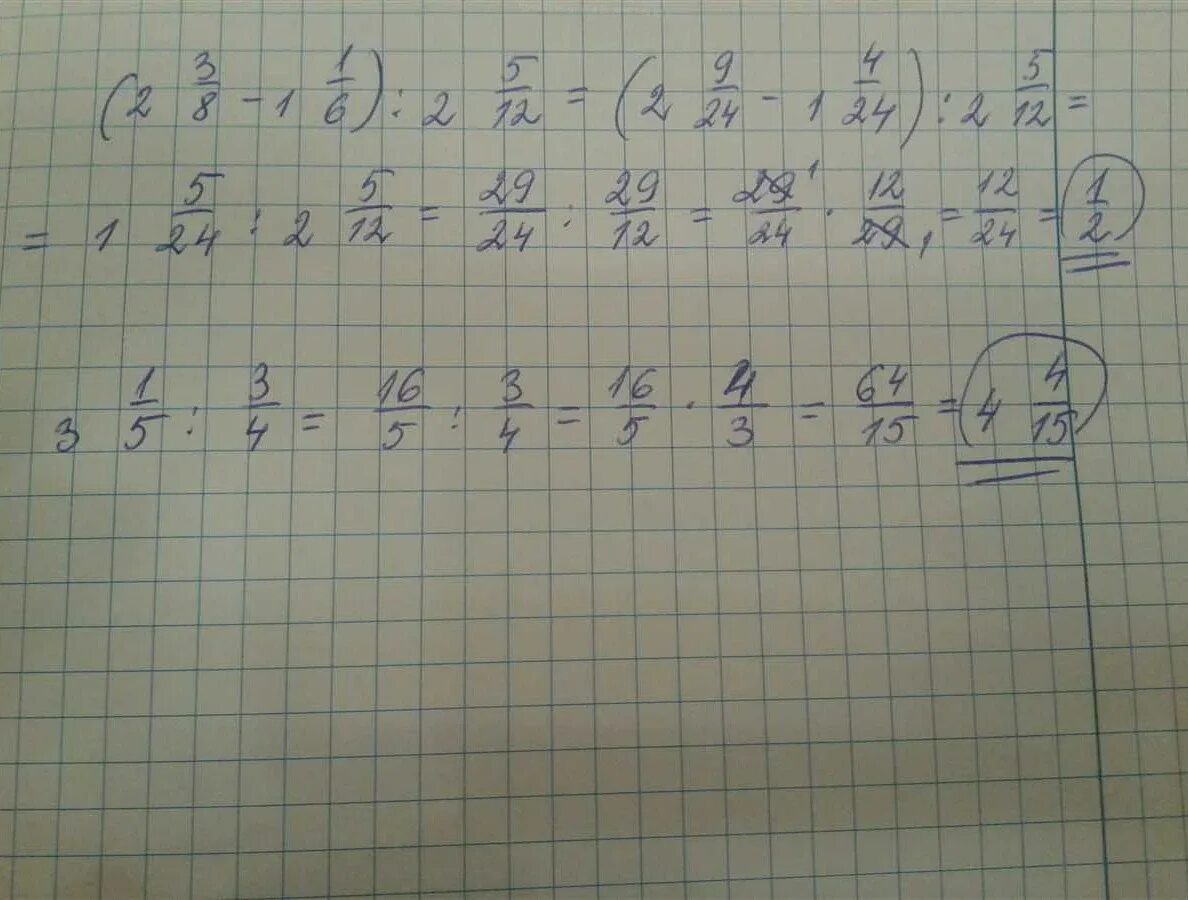 (2 3/8 - 1 1/6) : 2 5/12 = (2 9/24 - 1 4/24) : 2 5/12 =
= 1 5/24 : 2 5/12 = 29/24 : 29/12 = 29 1/24 · 12/29 1 = 12/24 = 1/2
3 1/5 : 3/4 = 16/5 : 3/4 = 16/5 · 4/3 = 64/15 = 4 4/15